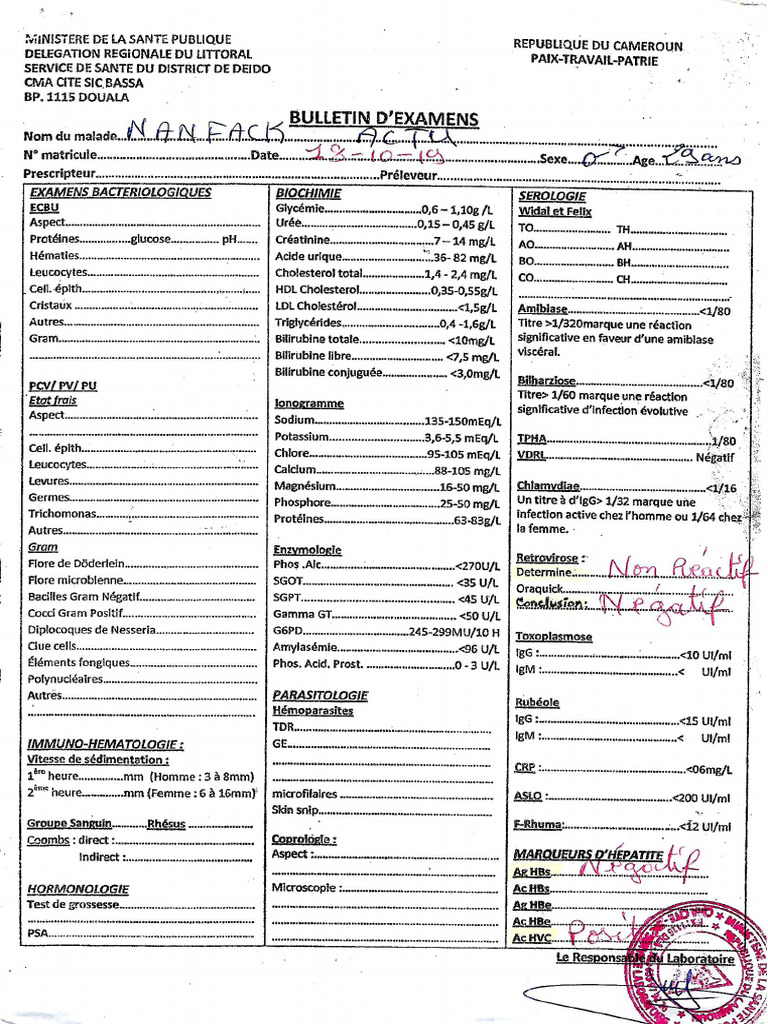 MINISTERE DE LA SANTE PUBLIQUE
DELEGATION REGIONALE DU LITTORAL
SERVICE DE SANTE DU DISTRICT DE DEIDO
CMA CITE SIC BASSA
BP. 1115 DOUALA
REPUBLIQUE DU CAMEROUN
PAIX-TRAVAIL-PATRIE
BULLETIN D'EXAMENS
Nom du malade...NANFACK ACTU
N° matricule...Date...18-10-19...Sexe...♂...Age...29ans
Prescripteur...Préleveur...
EXAMENS BACTERIOLOGIQUES
ECBU
Aspect...
Protéines...glucose...pH...
Hématies...
Leucocytes...
Cell. épith...
Cristaux...
Autres...
Gram...
PCV/ PV/ PU
Etat frais
Aspect...
Cell. épith...
Leucocytes...
Levures...
Germes...
Trichomonas...
Autres...
Gram
Flore de Döderlein...
Flore microbienne...
Bacilles Gram Négatif...
Cocci Gram Positif...
Diplocoques de Nesseria...
Clue cells...
Éléments fongiques...
Polynucléaires...
Autres...
IMMUNO-HEMATOLOGIE :
Vitesse de sédimentation :
1ère heure...mm (Homme : 3 à 8mm)
2ème heure...mm (Femme : 6 à 16mm)
Groupe Sanguin...Rhésus...
Coombs : direct :...
Indirect :...
HORMONOLOGIE
Test de grossesse...
PSA...
BIOCHIMIE
Glycémie...0,6 – 1,10g /L
Urée...0,15 – 0,45 g/L
Créatinine...7 – 14 mg/L
Acide urique...36- 82 mg/L
Cholesterol total...1,4 - 2,4 mg/L
HDL Cholesterol...0,35-0,55g/L
LDL Cholestérol...<1,5g/L
Triglycérides...0,4 -1,6g/L
Bilirubine totale...<10mg/L
Bilirubine libre...<7,5 mg/L
Bilirubine conjuguée...<3,0mg/L
Ionogramme
Sodium...135-150mEq/L
Potassium...3,6-5,5 mEq/L
Chlore...95-105 mEq/L
Calcium...88-105 mg/L
Magnésium...16-50 mg/L
Phosphore...25-50 mg/L
Protéines...63-83g/L
Enzymologie
Phos .Alc...<270U/L
SGOT...<35 U/L
SGPT...<45 U/L
Gamma GT...<50 U/L
G6PD...245-299MU/10 H
Amylasémie...<96 U/L
Phos. Acid. Prost...0 - 3 U/L
PARASITOLOGIE
Hémoparasites
TDR...
GE...
microfilaires...
Skin snip...
Coprologie :
Aspect :...
Microscopie :...
SEROLOGIE
Widal et Felix
TO... TH...
AO... AH...
BO... BH...
CO... CH...
Amibiase...<1/80
Titre >1/320marque une réaction
significative en faveur d'une amibiase
viscéral.
Bilharziose...<1/80
Titre> 1/60 marque une réaction
significative d'infection évolutive
TPHA...1/80
VDRL... Négatif
Chlamydiae...<1/16
Un titre à d'IgG> 1/32 marque une
infection active chez l'homme ou 1/64 chez
la femme.
Retrovirose :
Determine:...Non Réactif
Oraquick...
Conclusion:...Négatif
Toxoplasmose
IgG :...<10 UI/ml
IgM :...< UI/ml
Rubéole
IgG :...<15 UI/ml
IgM :...< UI/ml
CRP...<06mg/L
ASLO :...<200 UI/ml
F-Rhuma:...<12 UI/ml
MARQUEURS D'HEPATITE
Ag HBs...Négatif
Ac HBs...
Ag HBe...
Ac HBe...
Ac HVC...Posit
Le Responsable du Laboratoire